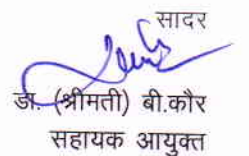 सादर
डा. (श्रीमती) बी.कौर
सहायक आयुक्त